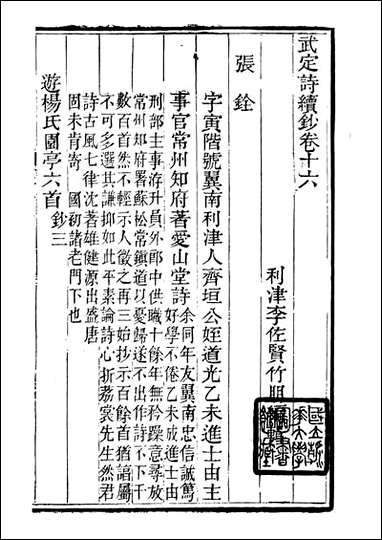 武定詩續鈔卷十六
利津李佐賢竹朋
張銓
字寅階號翼南利津人齊垣公姪道光乙未進士由主
事官常州知府著愛山堂詩
余同年友翼南忠信誠篤
好學不倦乙未成進士由
刑部主事洊升員外郎中供職十餘年無矜躁意尋放
常州知府署蘇松常鎮道以憂歸遂不出作詩不下千
數百首然不輕示人徵之再三始抄示百餘首猶諄屬
不可多選其謙抑如此平素論詩心折荔裳先生然君
詩古風七律沈著雄健源出盛唐
固未肯寄 國初諸老門下也
遊楊氏園亭六首
鈔三